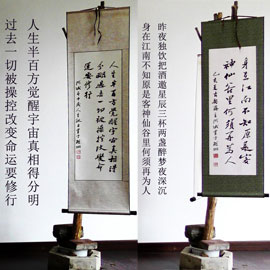 人生半百方觉醒宇宙真相得分明
过去一切被操控改变命运要修行
人生半百方觉醒宇宙真相得
分明过去一切被操控改变命
运要修行
昨夜独饮把酒邀星辰三杯两盏醉梦夜深沉
身在江南不知原是客神仙谷里何须再为人
身在江南不知原是客
神仙谷里何须再为人